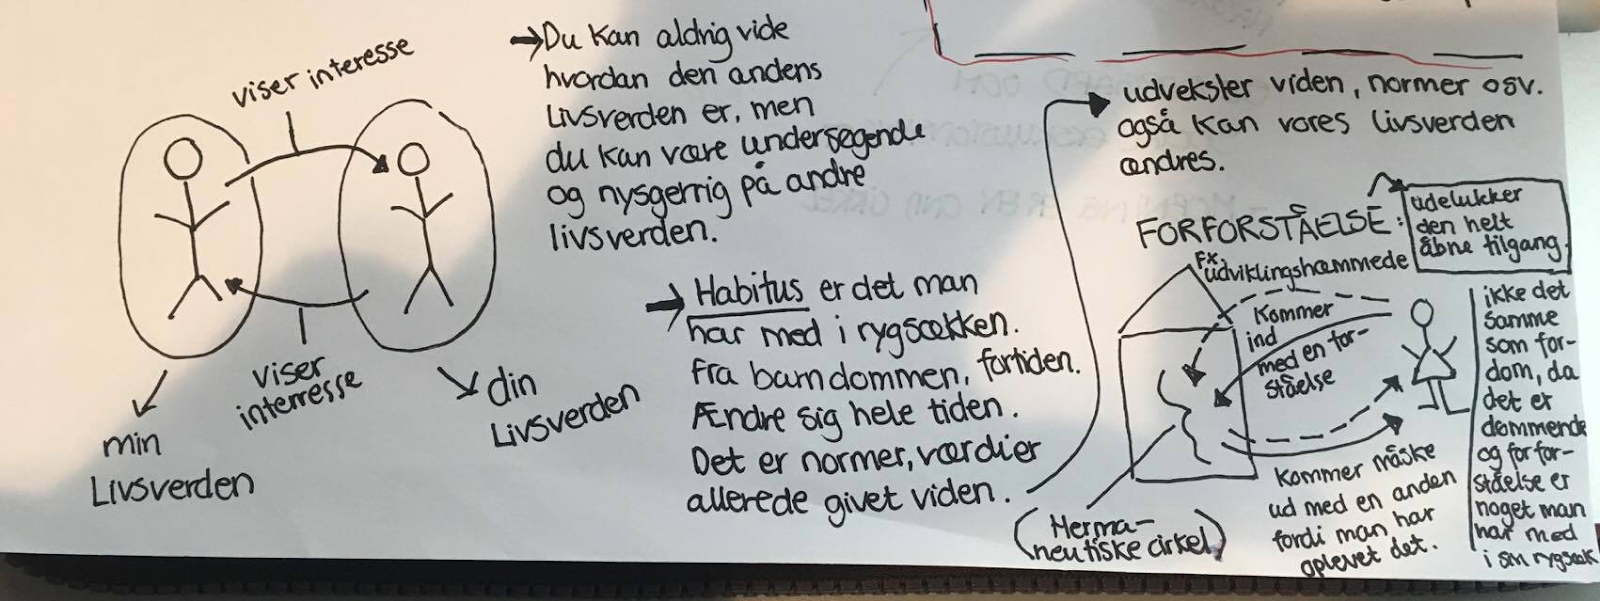 viser interesse
viser
interresse
min
Livsverden
din
Livsverden
→Du kan aldrig vide
hvordan den andens
Livsverden er, men
du kan være undersøgende
og nysgerrig på andre
livsverden.
→ Habitus er det man
har med i rygsækken.
Fra barndommen, fortiden.
Ændre sig hele tiden.
Det er normer, værdier
allerede givet viden.
udveksler viden, normer osv.
også kan vores livsverden
ændres.
FORFORSTÅELSE:
udelukker
den helt
åbne tilgang.
Fx
udviklingshæmmede
Kommer
ind
med en for-
ståelse
Kommer måske
ud med en anden
fordi man har
oplevet det.
(Herma-
neutiske cirkel)
ikke det
samme
som for-
dom, da
det er
dømmende
og forfor-
ståelse er
noget man
har med
i sin rygsæk